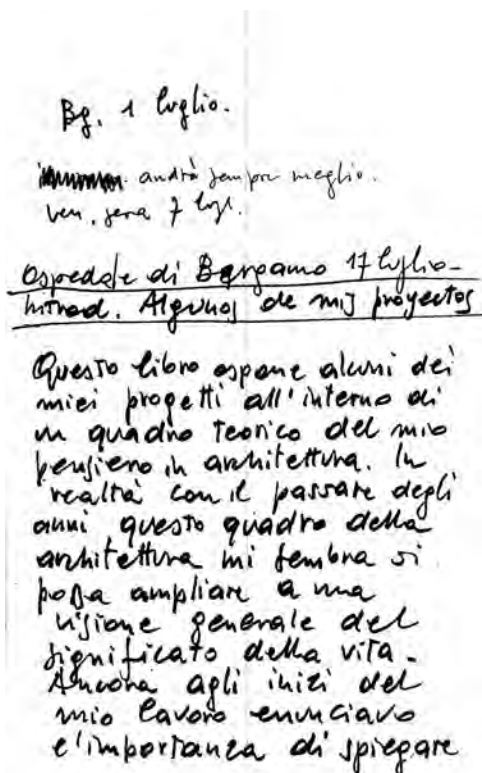 Bg. 1 luglio.
andrà sempre meglio.
ven. sera 7 lugl.
Ospedale di Bergamo 17 luglio -
introd. Algunos de mis proyectos
Questo libro espone alcuni dei
miei progetti all'interno di
un quadro teorico del mio
pensiero in architettura. In
realtà con il passare degli
anni questo quadro della
architettura mi sembra si
possa ampliare a una
visione generale del
significato della vita -
Ancora agli inizi del
mio lavoro enunciavo
l'importanza di spiegare